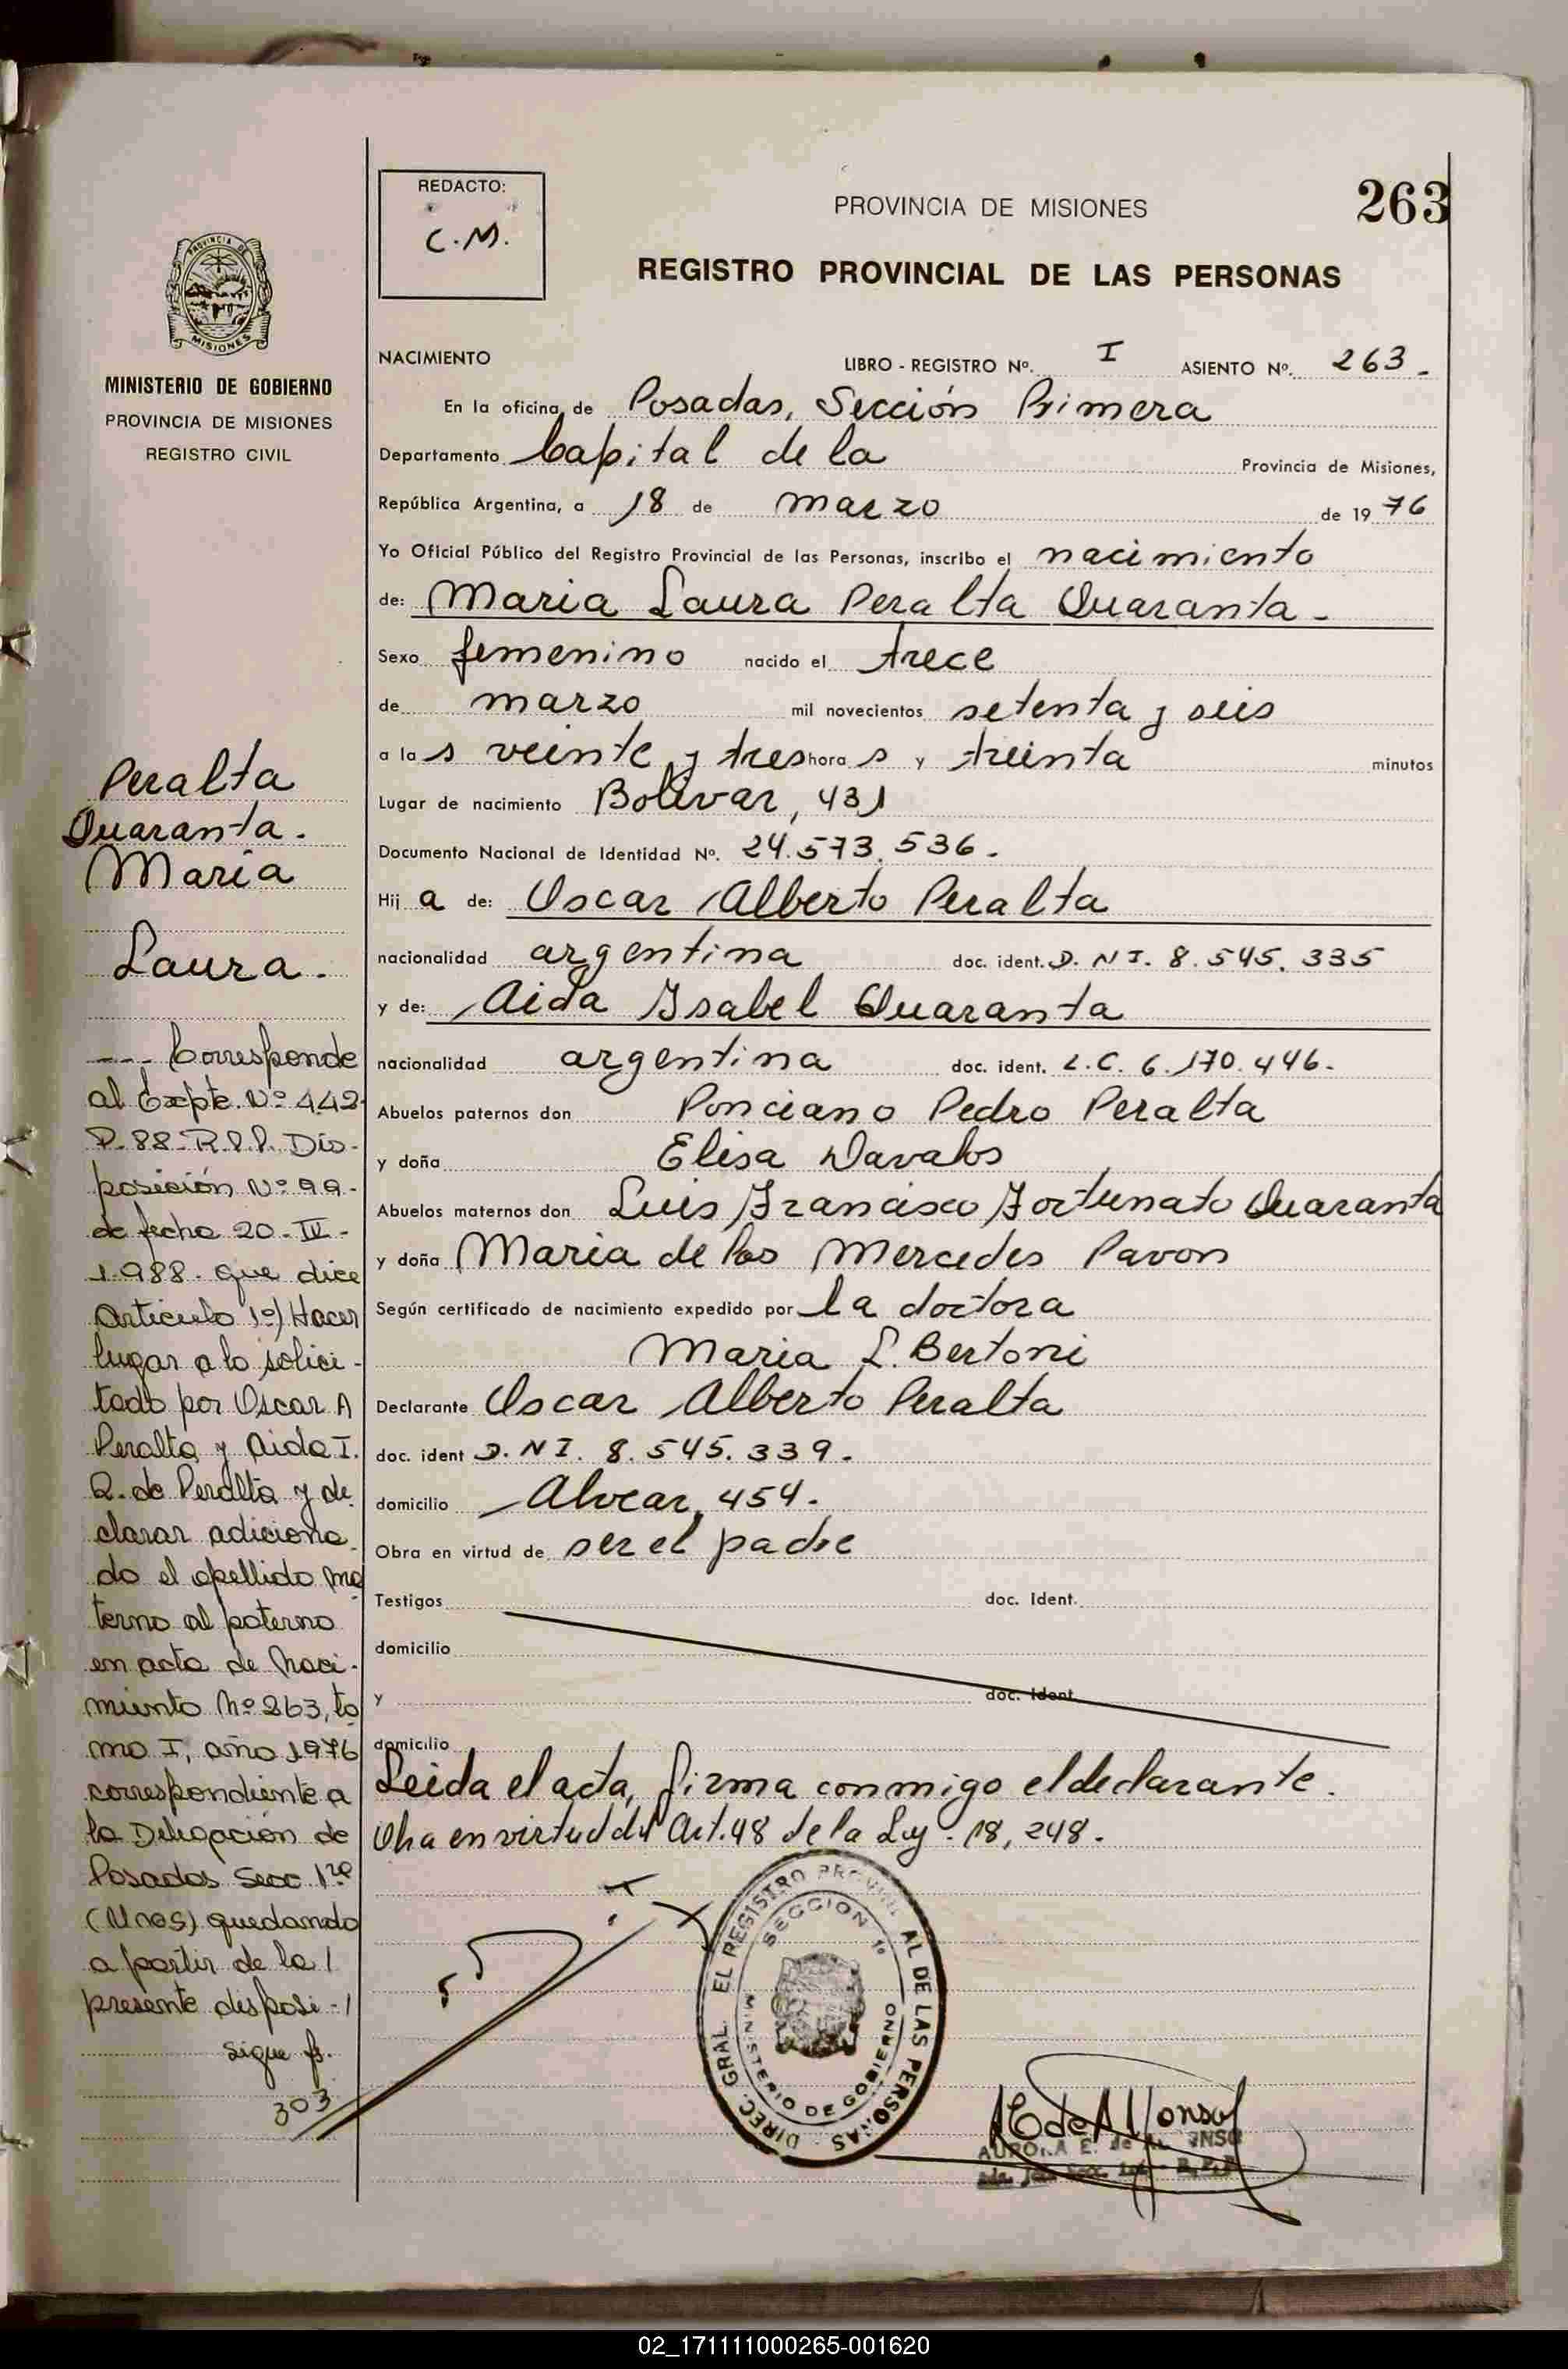 263
REDACTO:
C.M.
PROVINCIA DE MISIONES
REGISTRO PROVINCIAL DE LAS PERSONAS
PROVINCIA DE
MISIONES
MINISTERIO DE GOBIERNO
PROVINCIA DE MISIONES
REGISTRO CIVIL
NACIMIENTO LIBRO - REGISTRO Nº. I ASIENTO Nº. 263.
En la oficina de Posadas, Sección Primera
Departamento Capital de la Provincia de Misiones,
República Argentina, a 18 de marzo de 19 76
Yo Oficial Público del Registro Provincial de las Personas, inscribo el nacimiento
de: Maria Laura Peralta Quaranta.
Sexo femenino nacido el trece
de marzo mil novecientos setenta y seis
a la s veinte y tres hora s y treinta minutos
Lugar de nacimiento Bolivar, 431
Documento Nacional de Identidad Nº. 24.573.536.
Hij a de: Oscar Alberto Peralta
nacionalidad argentina doc. ident. D.NI. 8.545.335
y de: Aida Isabel Quaranta
nacionalidad argentina doc. ident. L.C. 6.170.446.
Abuelos paternos don Ponciano Pedro Peralta
y doña Elisa Davalos
Abuelos maternos don Luis Francisco Fortunato Quaranta
y doña Maria de las Mercedes Pavon
Según certificado de nacimiento expedido por la doctora
Maria L. Bertoni
Declarante Oscar Alberto Peralta
doc. ident D.NI. 8.545.339.
domicilio Alvear, 454.
Obra en virtud de ser el padre
Testigos doc. Ident.
domicilio
y doc. Ident.
domicilio
Leida el acta, firma conmigo el declarante.
Una en virtud del Art. 48 de la Ley. 18,248.
Peralta
Quaranta.
Maria
Laura.
--- Corresponde
al Expte. Nº 442-
P-88-R.P.P. Dis-
posición Nº 99-
de fecha 20-IV-
1.988. que dice
Articulo 1º) Hacer
lugar a lo solici-
tado por Oscar A
Peralta y Aida I.
Q. de Peralta y de
clarar adiciona
do el apellido ma
terno al paterno
en acta de Naci-
miento Nº 263, to
mo I, año 1976
correspondiente a
la Delegación de
Posadas Secc 1ra
(Mnes) quedando
a partir de la /
presente disposi-/
sigue fs.
303
DIREC. GRAL. EL REGISTRO PROVIN AL DE LAS PERSONAS
SECCION 1º
MINISTERIO DE GOBIERNO
AURORA E. de